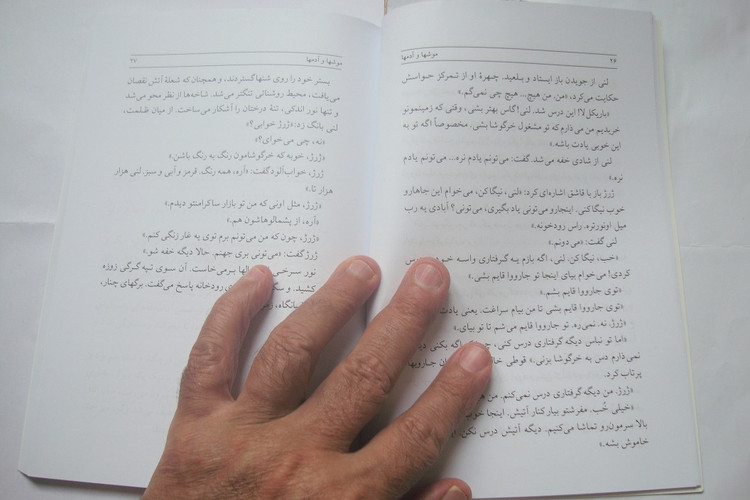 ۲۶ موشها و آدمها
لنی از جویدن باز ایستاد و بلعید. چهرهٔ او از تمرکز حواسش
حکایت می‌کرد، «من. من هیچ... هیچ چی نمی‌گم.»
«باریکل‌لا! این درس شد. لنی! گاس بهتر بشی، وقتی که زمینمونو
خریدیم من می‌ذارم که تو مشغول خرگوشا بشی. مخصوصاً اگه تو به
این خوبی یادت باشه.»
لنی از شادی خفه می‌شد. گفت: «می‌تونم یادم نره... می‌تونم یادم
نره.»
ژرژ باز با قاشق اشاره‌ای کرد: «لنی، نیگا کن، می‌خوام این جاهارو
خوب نیگا کنی. اینجارو می‌تونی یاد بگیری، می‌تونی؟ آبادی یه رب
میل اونورتره. راس رودخونه.»
لنی گفت: «می‌دونم.»
«خب، نیگا کن. لنی، اگه بازم یه گرفتاری واسه
کردی! می‌خوام بیای اینجا تو جارووا قایم بشی.»
«توی جارووا قایم بشم.»
«توی جارووا قایم بشی تا من بیام سراغت. یعنی یادت
«ژرژ، نه. نمی‌ره. تو جارووا قایم می‌شم تا تو بیای.»
«اما تو نباس دیگه گرفتاری درس کنی، اگه بکنی
نمی‌ذارم دس به خرگوشا بزنی.» قوطی جارویها
پرتاب کرد.
«ژرژ. من دیگه گرفتاری درس نمی‌کنم. من
«خیلی خُب. مفرشتو بیار کنار آتیش. اینجا
بالا سرمون‌رو تماشا می‌کنیم. دیگه آتیش درس نکن.
خاموش بشه.»
موشها و آدمها ۲۷
بستر خود را روی شنها گستردند، و همچنان که شعلهٔ آتش نقصان
می‌یافت، محیط روشنائی تنگتر می‌شد. شاخه‌ها از نظر محو می‌شد
و تنها نور اندکی، تنهٔ درختان را آشکار می‌ساخت. از میان ظلمت،
لنی بانگ زد: «ژرژ خوابی؟»
«نه، چی می‌خوای؟»
«ژرژ، خوبه که خرگوشامون رنگ به رنگ باشن.»
ژرژ، خواب‌آلود گفت: «آره، همه رنگ. قرمز و آبی و سبز. لنی هزار
هزار تا.»
«ژرژ، مثل اونی که من تو بازار ساکرامنتو دیدم.»
«آره، از پشمالوهاشون هم.»
«ژرژ، چون که من می‌تونم برم توی یه غار زنگی کنم.»
ژرژ گفت: «می‌تونی بری جهنم. حالا دیگه خفه شو.»
نور سرخی برمی‌خاست. آن سوی تپه گرگی زوزه
کشید. و رودخانه پاسخ می‌گفت. برگهای چنار،